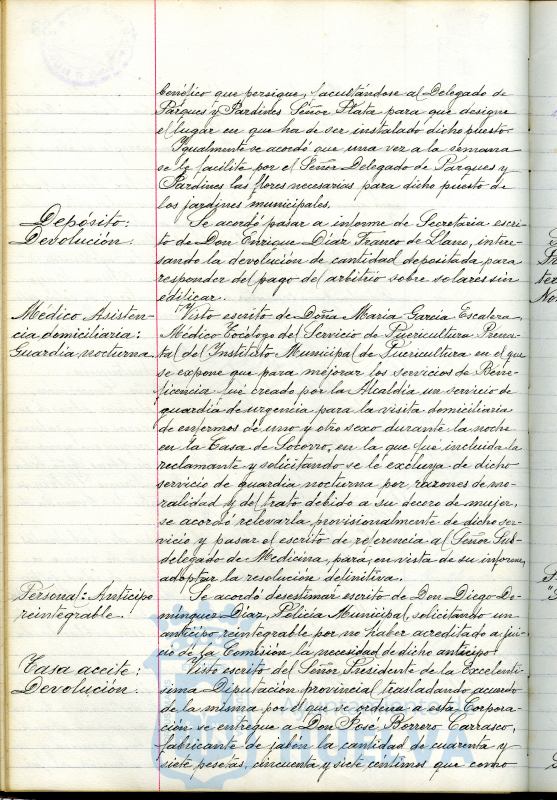 benéfico que persigue, facultándose al Delegado de
Parques y Jardines Señor Plata para que designe
el lugar en que ha de ser instalado dicho puesto.
Igualmente se acordó que una vez a la semana
se le facilite por el Señor Delegado de Parques y
Jardines las flores necesarias para dicho puesto de
los jardines municipales.
Depósito:
Devolución.
Se acordó pasar a informe de Secretaría escri-
to de Don Enrique Díaz Franco de Llano, intere-
sando la devolución de cantidad depositada para
responder del pago del arbitrio sobre solares sin
edificar.
Médico Asisten-
cia domiciliaria:
Guardia nocturna.
Visto escrito de Doña María García Escalera,
Médico Tocólogo del Servicio de Puericultura Prena-
tal del Instituto Municipal de Puericultura en el que
se expone que para mejorar los servicios de Bene-
ficencia fué creado por la Alcaldía un servicio de
guardia de urgencia para la visita domiciliaria
de enfermos de uno y otro sexo durante la noche
en la Casa de Socorro, en la que fué incluida la
reclamante y solicitando se le excluya de dicho
servicio de guardia nocturna por razones de mo-
ralidad y del trato debido a su decoro de mujer,
se acordó relevarla provisionalmente de dicho ser-
vicio y pasar el escrito de referencia al Señor Sub-
delegado de Medicina, para, en vista de su informe,
adoptar la resolución definitiva.
Personal: Anticipo
reintegrable.
Se acordó desestimar escrito de Don Diego Do-
mínguez Díaz, Policía Municipal, solicitando un
anticipo reintegrable por no haber acreditado a jui-
cio de la Comisión la necesidad de dicho anticipo.
Tasa aceite:
Devolución.
Visto escrito del Señor Presidente de la Excelentí-
sima Diputación provincial trasladando acuerdo
de la misma por el que se ordena a esta Corpora-
ción se entregue a Don José Borrero Carrasco,
fabricante de jabón la cantidad de cuarenta y
siete pesetas, cincuenta y siete céntimos que como